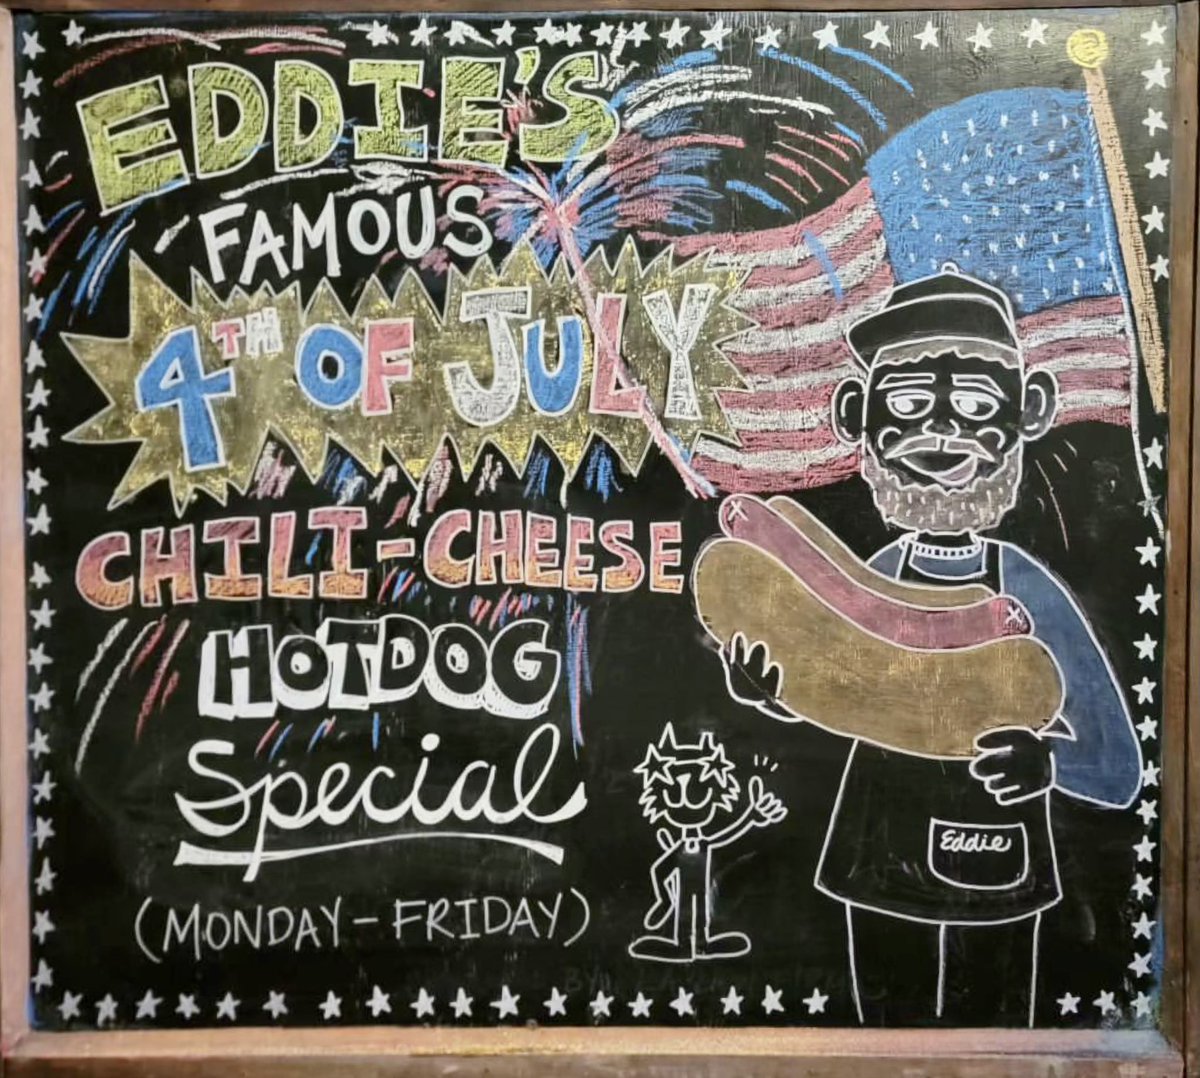 EDDIE'S
FAMOUS
4TH OF JULY
CHILI-CHEESE
HOTDOG
Special
(MONDAY-FRIDAY)
Eddie